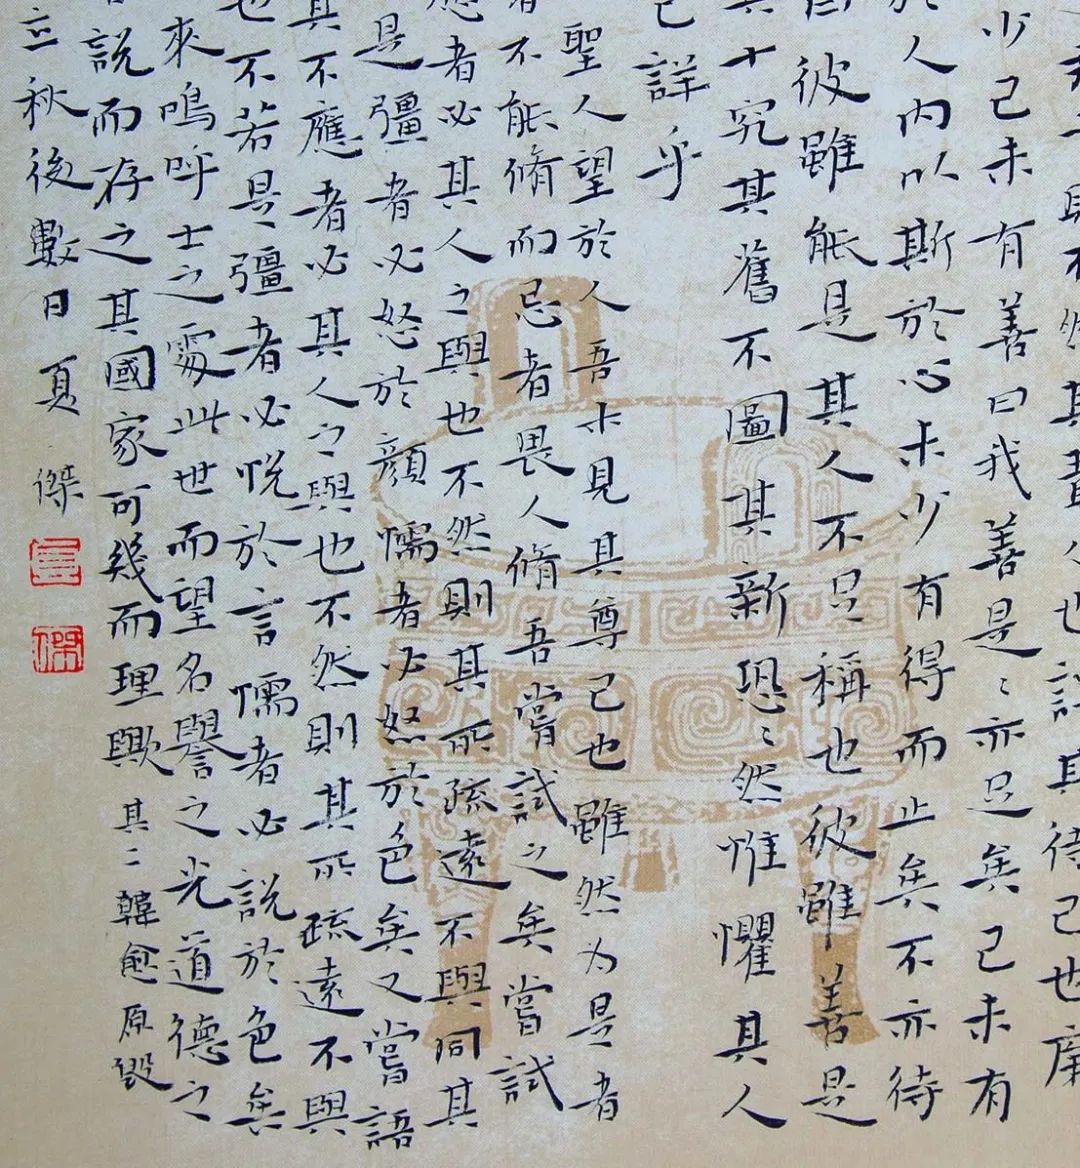 不然其責人也詳其待己也廉
少己未有善曰我善是〻亦足矣己未有
於人内以斯於心未少有得而止矣不亦待
曰彼雖能是其人不足稱也彼雖善是
其十究其舊不圖其新恐〻然惟懼其人
已詳乎
聖人望於人吾未見其尊己也雖然為是者
者不能脩而忌者畏人脩吾嘗試之矣嘗試
應者必其人之與也不然則其所疏遠不與同其
是彊者必怒於顔懦者必怒於色矣又嘗語
其不應者必其人之與也不然則其所疏遠不與
也不若是彊者必悅於言懦者必説於色矣
來鳴呼士之處此世而望名譽之光道德之
説而存之其國家可幾而理歟 其二韓愈原毁
立秋後數日 夏傑
夏
傑